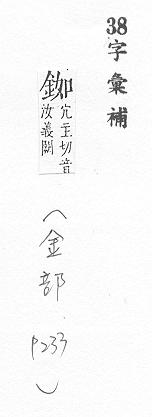 38字彙補
𨥧冗主切音
汝義闕
(金部 P233)